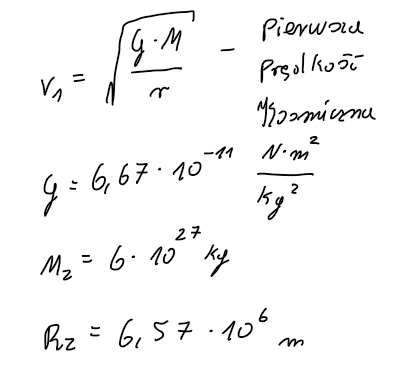 v₁ = √(G·M / r) – Pierwsza
Prędkość
Kosmiczna
G = 6,67 · 10⁻¹¹ N·m² / kg²
Mz = 6 · 10²⁷ kg
Rz = 6,57 · 10⁶ m